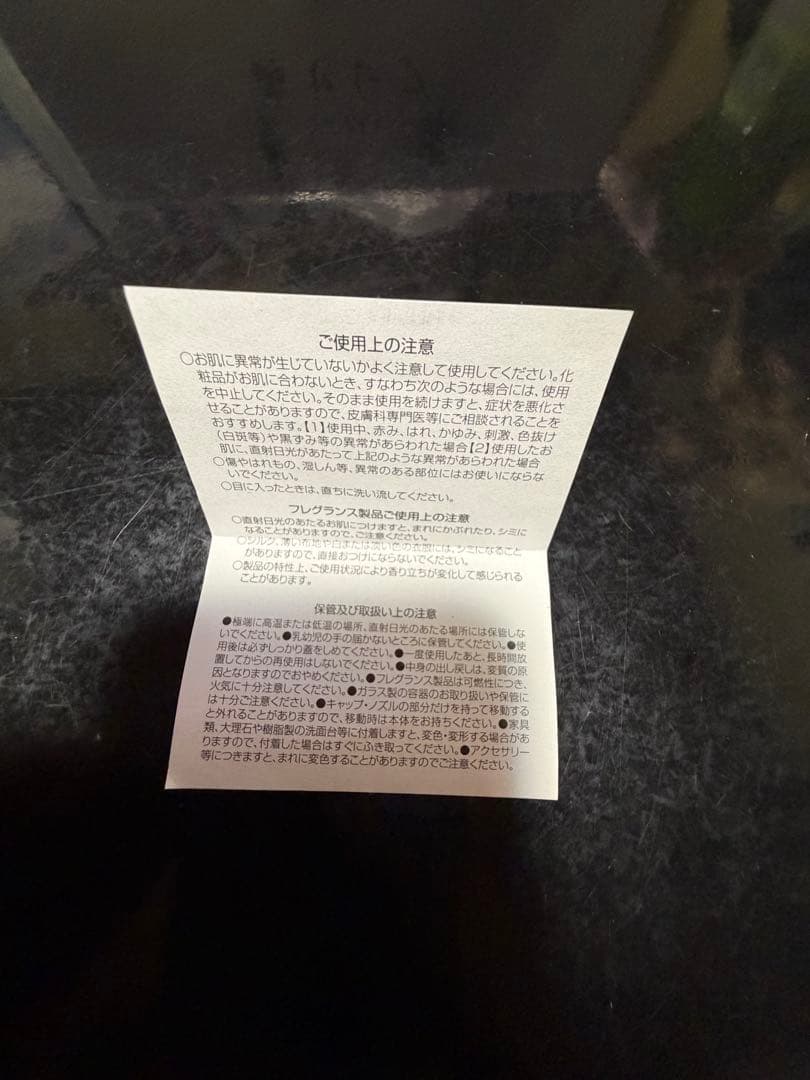 ご使用上の注意
○お肌に異常が生じていないかよく注意して使用してください。化
粧品がお肌に合わないとき、すなわち次のような場合には、使用
を中止してください。そのまま使用を続けますと、症状を悪化さ
せることがありますので、皮膚科専門医等にご相談されることを
おすすめします。【1】使用中、赤み、はれ、かゆみ、刺激、色抜け
(白斑等)や黒ずみ等の異常があらわれた場合【2】使用したお
肌に、直射日光があたって上記のような異常があらわれた場合
○傷やはれもの、湿しん等、異常のある部位にはお使いにならな
いでください。
○目に入ったときは、直ちに洗い流してください。
フレグランス製品ご使用上の注意
○直射日光のあたるお肌につけますと、まれにかぶれたり、シミに
なることがありますので、ご注意ください。
○シルク、薄い布地や白または淡い色の衣服には、シミになること
がありますので、直接おつけにならないでください。
○製品の特性上、ご使用状況により香り立ちが変化して感じられる
ことがあります。
保管及び取扱い上の注意
●極端に高温または低温の場所、直射日光のあたる場所には保管しな
いでください。●乳幼児の手の届かないところに保管してください。●使
用後は必ずしっかり蓋をしめてください。●一度使用したあと、長時間放
置してからの再使用はしないでください。●中身の出し戻しは、変質の原
因となりますのでおやめください。●フレグランス製品は可燃性につき、
火気に十分注意してください。●ガラス製の容器のお取り扱いや保管に
は十分ご注意ください。●キャップ・ノズルの部分だけを持って移動する
と外れることがありますので、移動時は本体をお持ちください。●家具
類、大理石や樹脂製の洗面台等に付着しますと、変色・変形する場合があ
りますので、付着した場合はすぐにふき取ってください。●アクセサリー
等につきますと、まれに変色することがありますのでご注意ください。